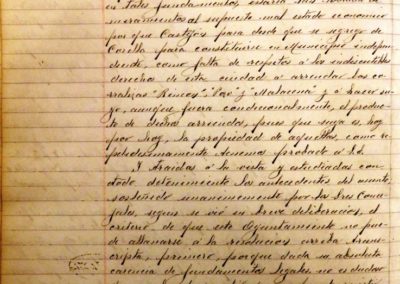 en tales fundamentos estaria sus
meramientos al supuesto mal estado economico
por que Castejon pasa desde que se segregó de
Corella para constituirse en Municipio indepen
diente, como falta de respetos á los indiscutibles
derechos de esta ciudad á arrendar las co
rralizas "Rincon", "Cajo" y "Malacena" y á hacer su
yo, aunque fuera condicionalmente, el produc
to de dichos arriendos, pues que suya es, hoy
por hoy, la propiedad de aquellas, como re
petidisimamente tenemos probado á Vd.
Y traidas á la vista y estudiadas con
todo detenimiento los antecedentes del asunto,
sostenido unanimemente por los Sres Conce
jales, segun se vió en breve deliberacion, el
criterio de que este Ayuntamiento no pue
de allanarse á la resolucion arriba trans
cripta, primero, porque dada su absoluta
carencia de fundamentos legales, no es dudoso